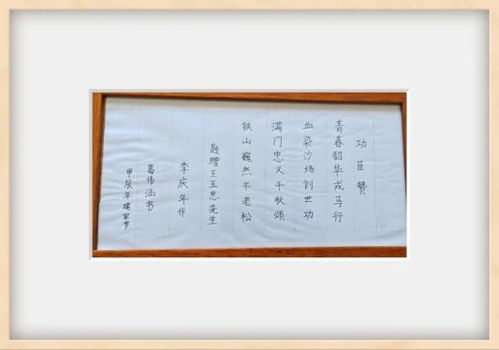 功臣赞
青春韶华戎马行
血染沙场创世功
满门忠义千秋颂
铁山巍然不老松
敬赠王玉思先生
李庆年作
葛伟涵书
甲辰年建军节